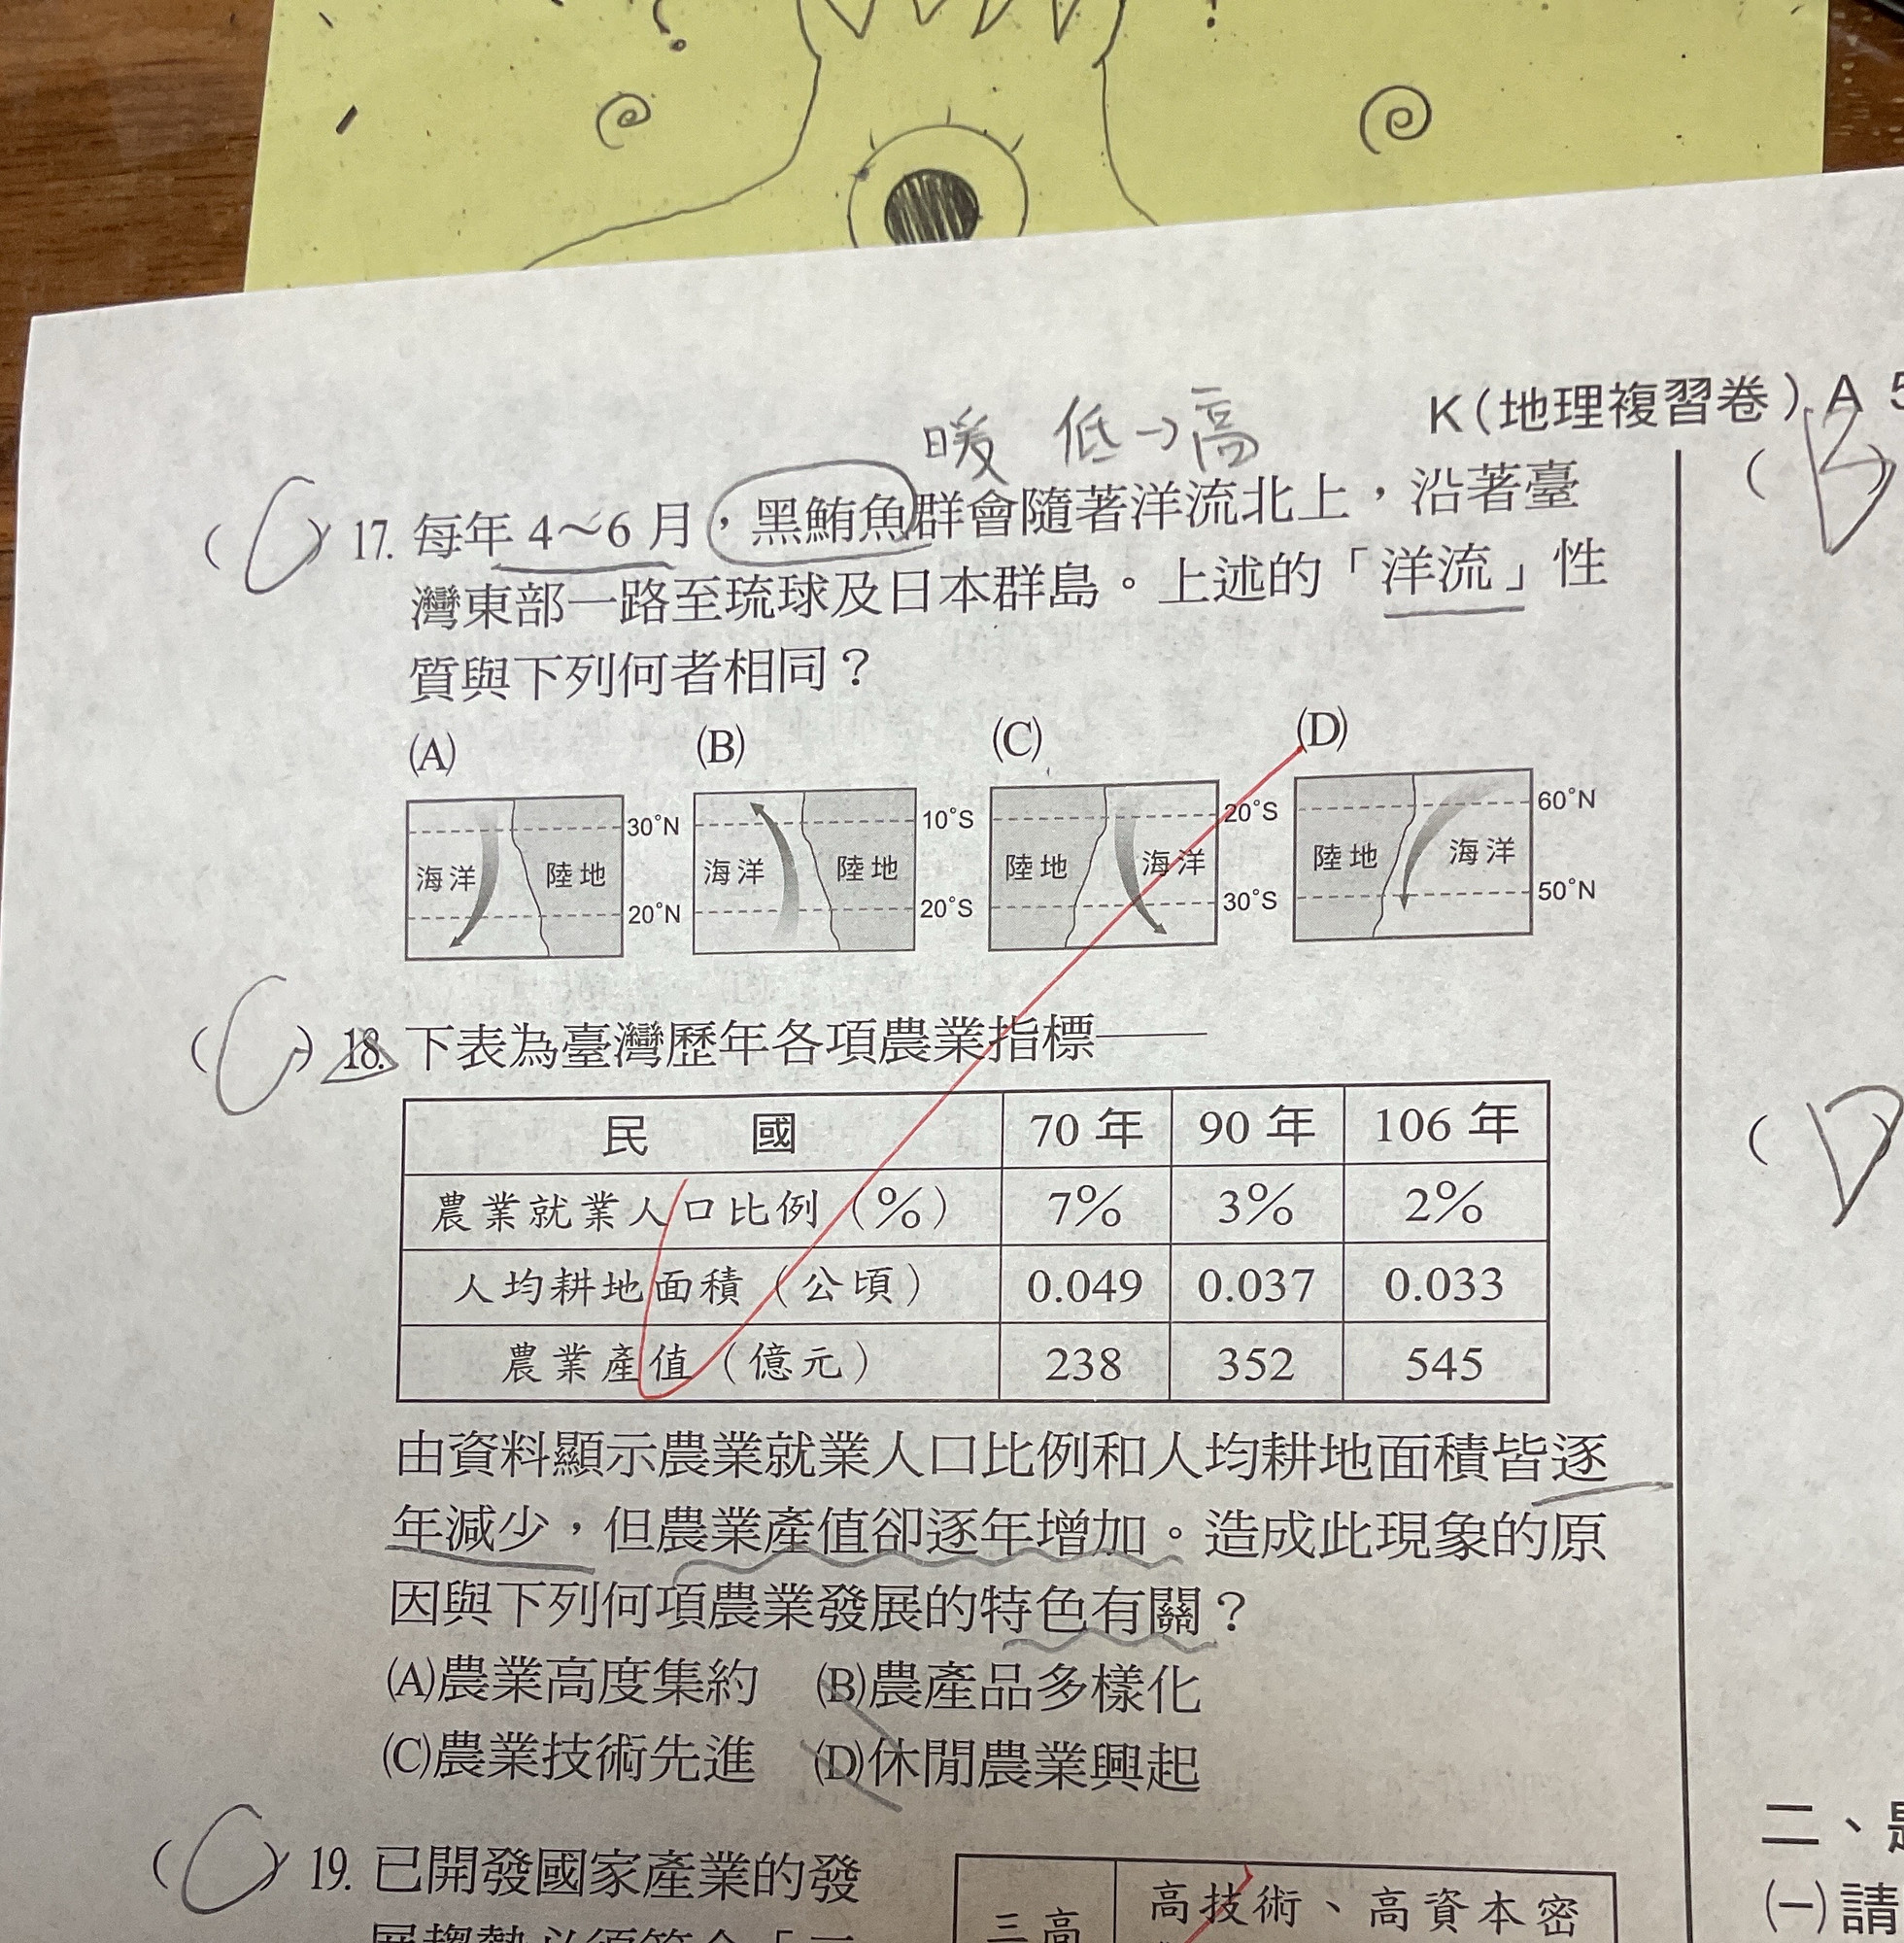 K(地理複習卷) A 5
暖 低→高
(C) 17. 每年 4～6 月，黑鮪魚群會隨著洋流北上，沿著臺
灣東部一路至琉球及日本群島。上述的「洋流」性
質與下列何者相同？
(A) (B) (C) (D)
海洋 陸地 30°N 20°N
海洋 陸地 10°S 20°S
陸地 海洋 20°S 30°S
陸地 海洋 60°N 50°N
(C) 18. 下表為臺灣歷年各項農業指標——
民 國 70 年 90 年 106 年
農業就業人口比例（%） 7% 3% 2%
人均耕地面積（公頃） 0.049 0.037 0.033
農業產值（億元） 238 352 545
由資料顯示農業就業人口比例和人均耕地面積皆逐
年減少，但農業產值卻逐年增加。造成此現象的原
因與下列何項農業發展的特色有關？
(A)農業高度集約 (B)農產品多樣化
(C)農業技術先進 (D)休閒農業興起
(C) 19. 已開發國家產業的發
三高 高技術、高資本密
(B)
(D)
二、
(一)請